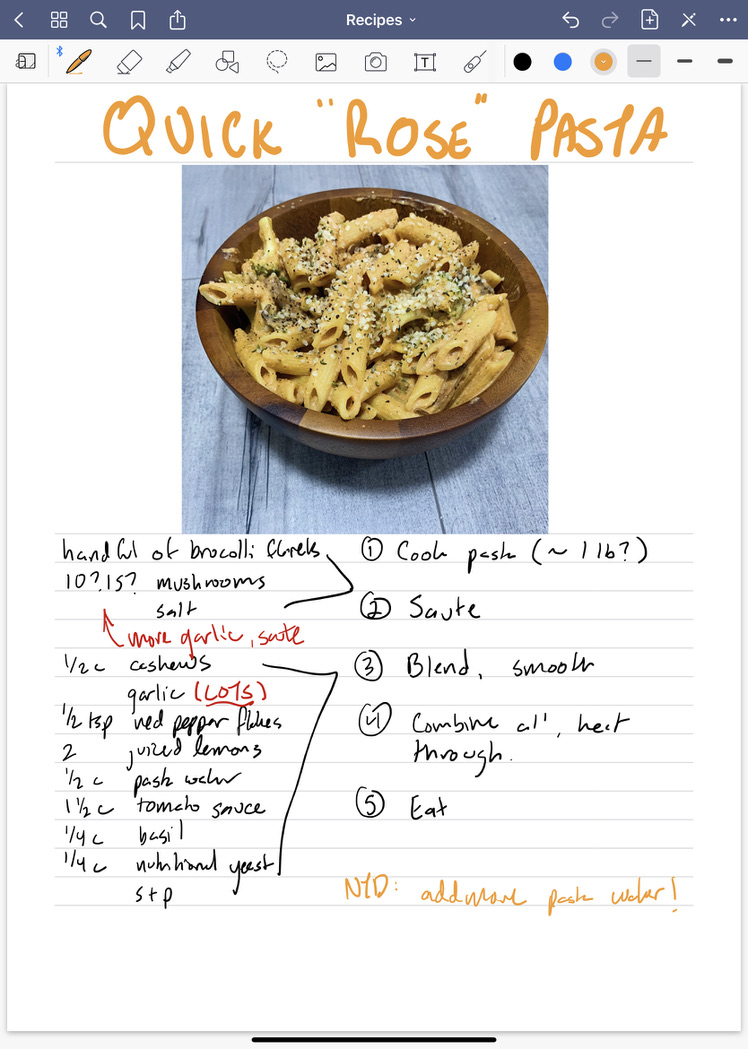 Recipes
T
QUICK "ROSE" PASTA
handful of brocolli florets
10? 15? mushrooms
salt
more garlic, saute
1/2 c cashews
garlic (LOTS)
1/2 tsp red pepper flakes
2 juiced lemons
1/2 c pasta water
1 1/2 c tomato sauce
1/4 c basil
1/4 c nutritional yeast
s + p
① Cook pasta (~ 1 lb?)
② Saute
③ Blend, smooth
④ Combine all, heat
through.
⑤ Eat
add more pasta water!